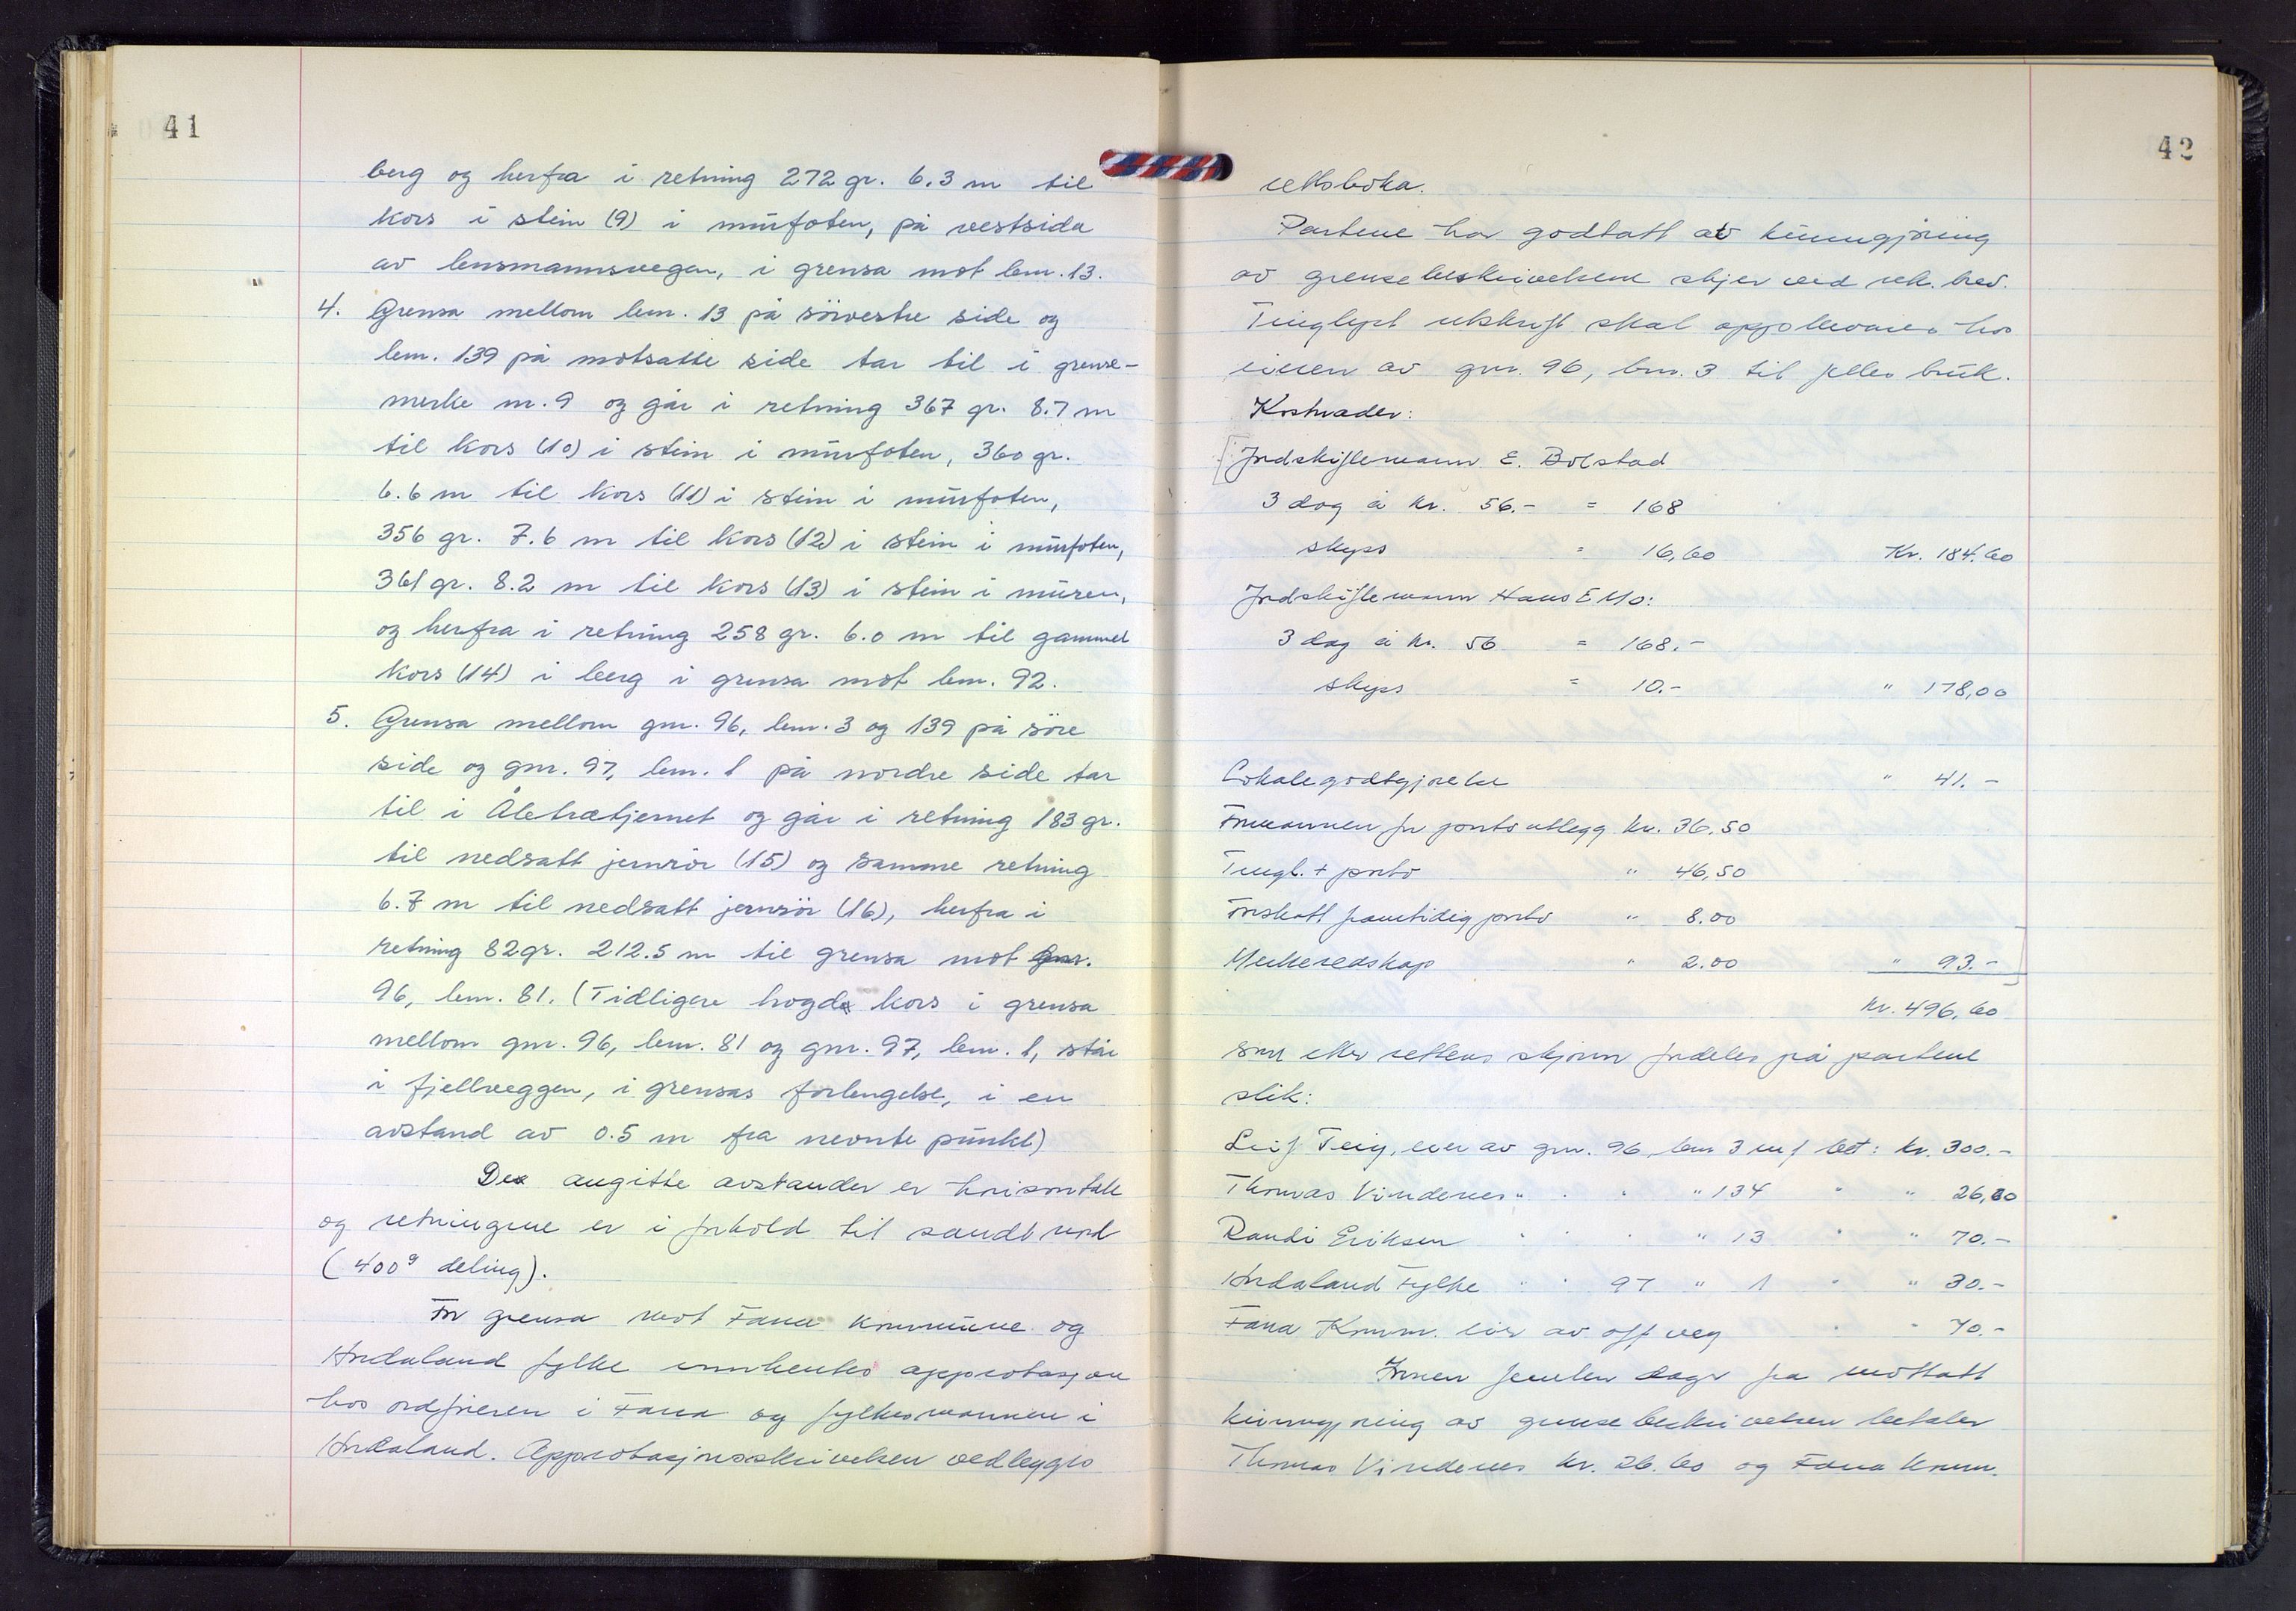 41
berg og herfra i retning 272 gr. 6.3 m til
kors i stein (9) i murfoten, på vestsida
av lensmannsvegen, i grensa mot bnr. 13.
4. Grensa mellom bnr. 13 på sörvestre side og
bnr. 139 på motsatte side tar til i grense-
merke nr. 9 og går i retning 367 gr. 8.7 m
til kors (10) i stein i murfoten, 360 gr.
6.6 m til kors (11) i stein i murfoten,
356 gr. 7.6 m til kors (12) i stein i murfoten,
361 gr. 8.2 m til kors (13) i stein i muren,
og herfra i retning 258 gr. 6.0 m til gammel
kors (14) i berg i grensa mot bnr. 92.
5. Grensa mellom gnr. 96, bnr. 3 og 139 på söre
side og gnr. 97, bnr. 1 på nordre side tar
til i Åletrætjernet og går i retning 183 gr.
til nedsatt jernrör (15) og samme retning
6.7 m til nedsatt jernrör (16), herfra i
retning 82 gr. 212.5 m til grensa mot gnr.
96, bnr. 81. (Tidligere hogd kors i grensa
mellom gnr. 96, bnr. 81 og gnr. 97, bnr. 1, står
i fjellveggen, i grensas forlengelse, i en
avstand av 0.5 m fra nevnte punkt)
De angitte avstander er horisontale
og retningene er i forhold til sandt nord
(400g deling).
For grensa mot Fana kommune og
Hordaland fylke innhentes approbasjon
hos ordføreren i Fana og fylkesmannen i
Hordaland. Approbasjonsskrivelsen vedlegges
42
rettsboka.
Partene har godtatt at kunngjøring
av grensebeskrivelsene skjer ved rek. brev.
Tinglyst utskrift skal oppbevares hos
eieren av gnr. 96, bnr. 3 til felles bruk.
Kostnader:
Jordskiftemann E. Bolstad
3 dag á kr. 56.- = 168
skyss = 16,60 Kr. 184.60
Jordskiftemann Hans E Mo:
3 dag á kr. 56 = 168.-
skyss = 10.- " 178,00
Lokalegodtgjørelse " 41.-
Formannen for porto utlegg kr. 36,50
Tingl. + porto " 46,50
Forskott framtidig porto " 8.00
Merkeredskap " 2.00 " 93.-
Kr. 496,60
som etter rettens skjønn fordeles på partene
slik:
Leif Teig, eier av gnr. 96, bnr 3 m/ bet: kr. 300.-
Thomas Vindenes " " " " 134 " " 26,60
Randi Eriksen " " " " 13 " " 70.-
Hordaland Fylke " " 97 " 1 " " 30.-
Fana Komm. eier av off veg " " 70.-
Innen femten dager fra mottatt
kunngjøring av grensebeskrivelsen betaler
Thomas Vindenes kr. 26.60 og Fana komm.